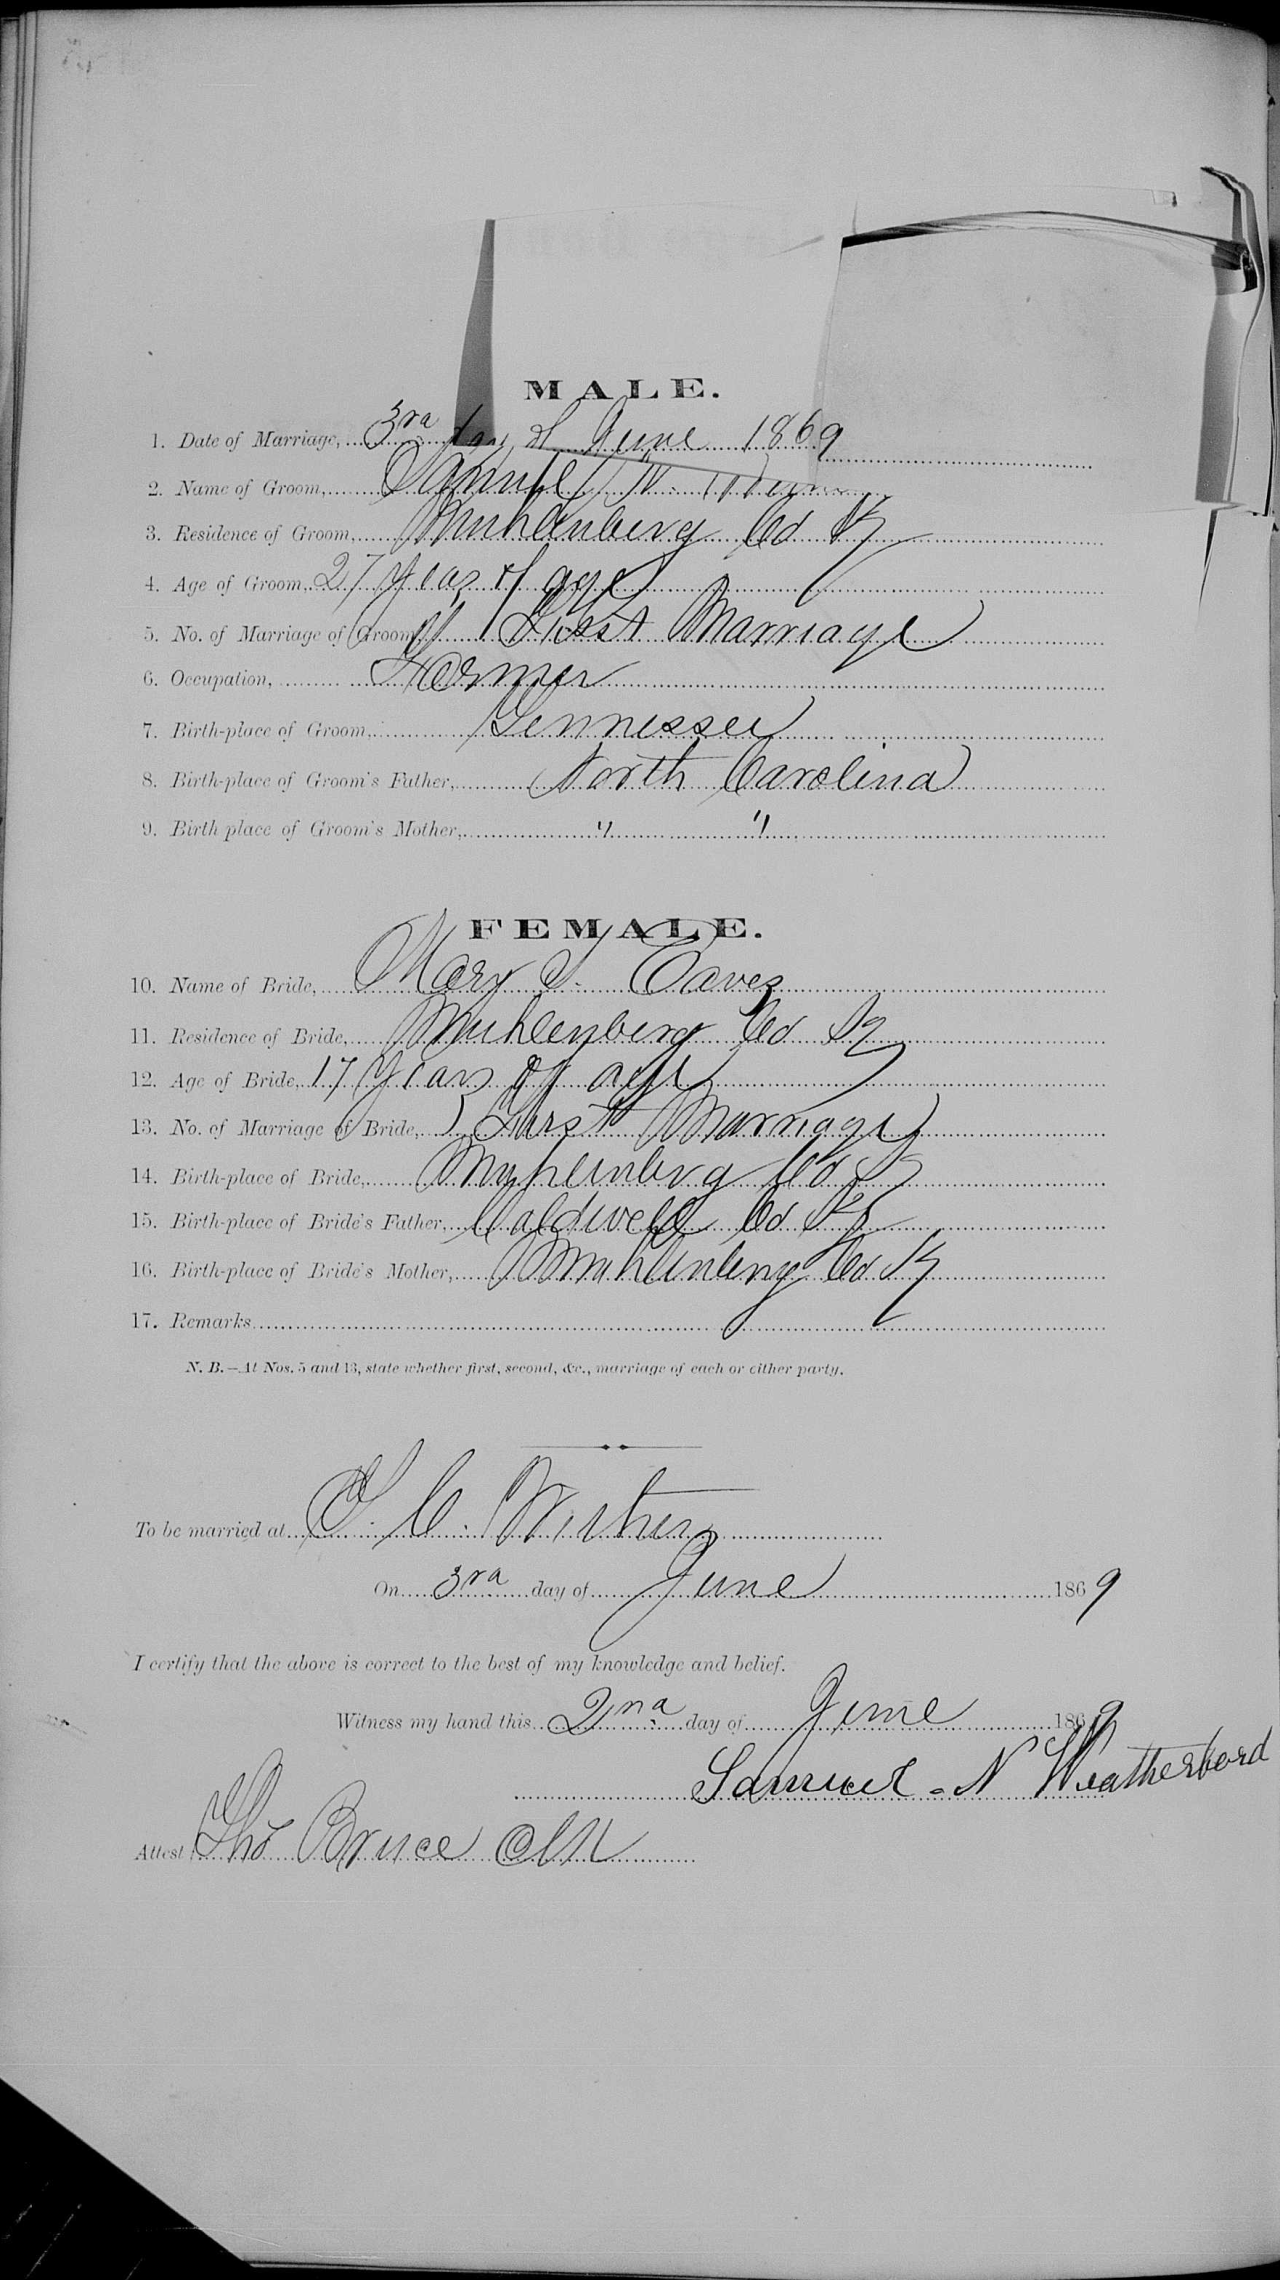 MALE.
1. Date of Marriage, 3rd day of June 1869
2. Name of Groom, Samuel N.
3. Residence of Groom, Muhlenberg Co Ky
4. Age of Groom, 27 years of age
5. No. of Marriage of Groom, First Marriage
6. Occupation, Farmer
7. Birth-place of Groom, Tennessee
8. Birth-place of Groom's Father, North Carolina
9. Birth place of Groom's Mother, " "
FEMALE.
10. Name of Bride, Mary S. Eaves
11. Residence of Bride, Muhlenberg Co Ky
12. Age of Bride, 17 years of age
13. No. of Marriage of Bride, First Marriage
14. Birth-place of Bride, Muhlenberg Co Ky
15. Birth-place of Bride's Father, Caldwell Co Ky
16. Birth-place of Bride's Mother, Muhlenberg Co Ky
17. Remarks
N. B.—At Nos. 5 and 13, state whether first, second, &c., marriage of each or either party.
To be married at
On 3rd day of June 1869
I certify that the above is correct to the best of my knowledge and belief.
Witness my hand this 2nd day of June 1869
Samuel N Weatherford
Attest Tho Bruce